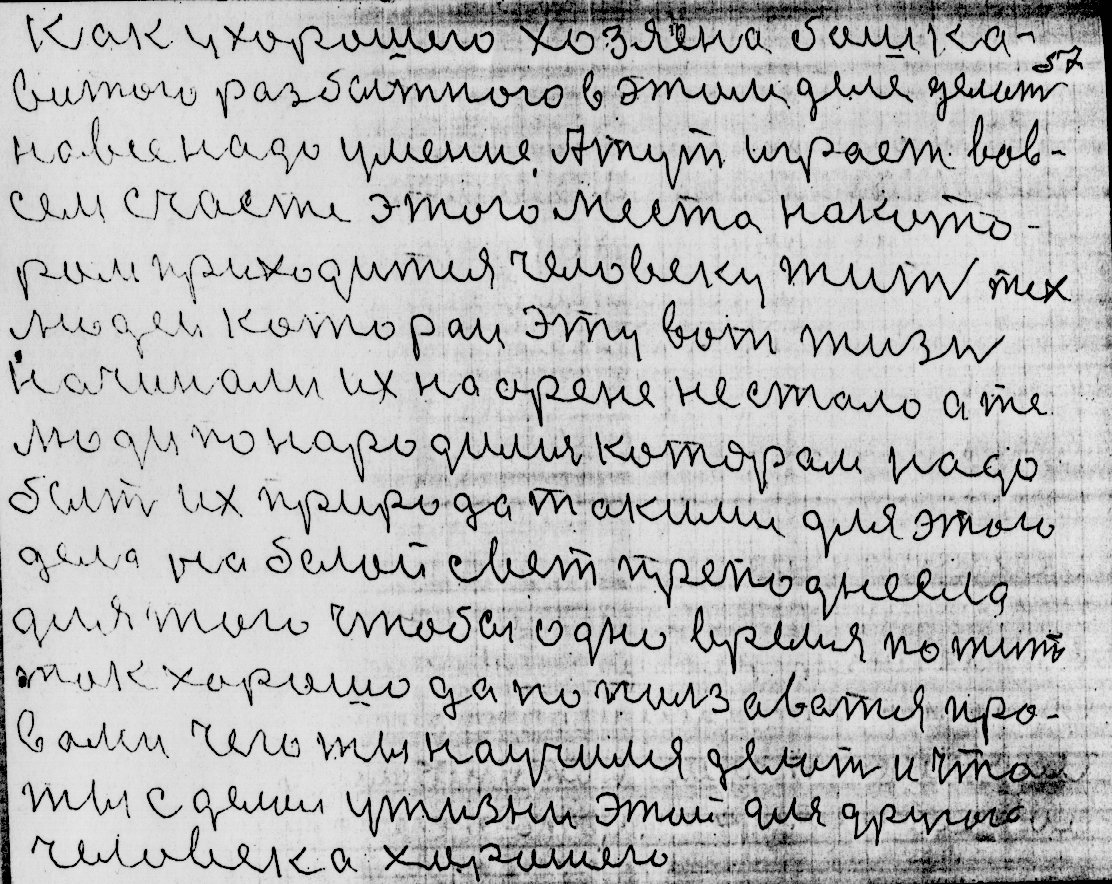 Как у хорошего хозяена башка-
57
витого разбатного в этом деле делат
на все надо умение. А тут играет вов-
сем счасте этого места на кото-
ром приходится человеку жит тех
людей которай эту вот жизн
начинали их на арене не стало а те
люди по народилися которам надо
быт их природа такими для этого
дела на белай свет преподнесла
для того чтобы одно время пожит
так хорошо да попользаватся про-
вами чего ты научился делат и что
ты сделал у жизни этой для другого
человека хорошего